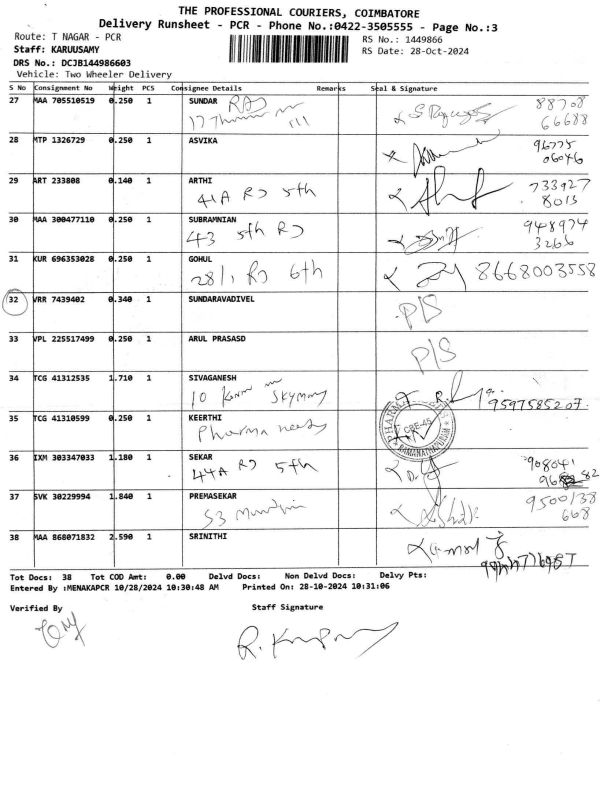 THE PROFESSIONAL COURIERS, COIMBATORE
Delivery Runsheet - PCR - Phone No.:0422-3505555 - Page No.:3
Route: T NAGAR - PCR
RS No.: 1449866
Staff: KARUUSAMY
RS Date: 28-Oct-2024
DRS No.: DCJB144986603
Vehicle: Two Wheeler Delivery
S No Consignment No Weight PCS Consignee Details Remarks Seal & Signature
27 MAA 705510519 0.250 1 SUNDAR 88708
66688
28 MTP 1326729 0.250 1 ASVIKA 96775
06046
29 ART 233808 0.140 1 ARTHI 733927
41A RJ 5th 8013
30 MAA 300477110 0.250 1 SUBRAMNIAN 948974
43 5th RJ 3266
31 KUR 696353028 0.250 1 GOHUL
28/1 RJ 6th 8668003558
32 VRR 7439402 0.340 1 SUNDARAVADIVEL
P/S
33 VPL 225517499 0.250 1 ARUL PRASASD
P/S
34 TCG 41312535 1.710 1 SIVAGANESH
10 9597585207
35 TCG 41310599 0.250 1 KEERTHI
Pharma needs
CBE-45
RAMANATHAPURAM
36 IXM 303347033 1.180 1 SEKAR 908041
44A RJ 5th
37 SVK 30229994 1.840 1 PREMASEKAR 9500138
53 668
38 MAA 868071832 2.590 1 SRINITHI
Tot Docs: 38 Tot COD Amt: 0.00 Delvd Docs: Non Delvd Docs: Delvy Pts:
Entered By :MENAKAPCR 10/28/2024 10:30:48 AM Printed On: 28-10-2024 10:31:06
Verified By Staff Signature